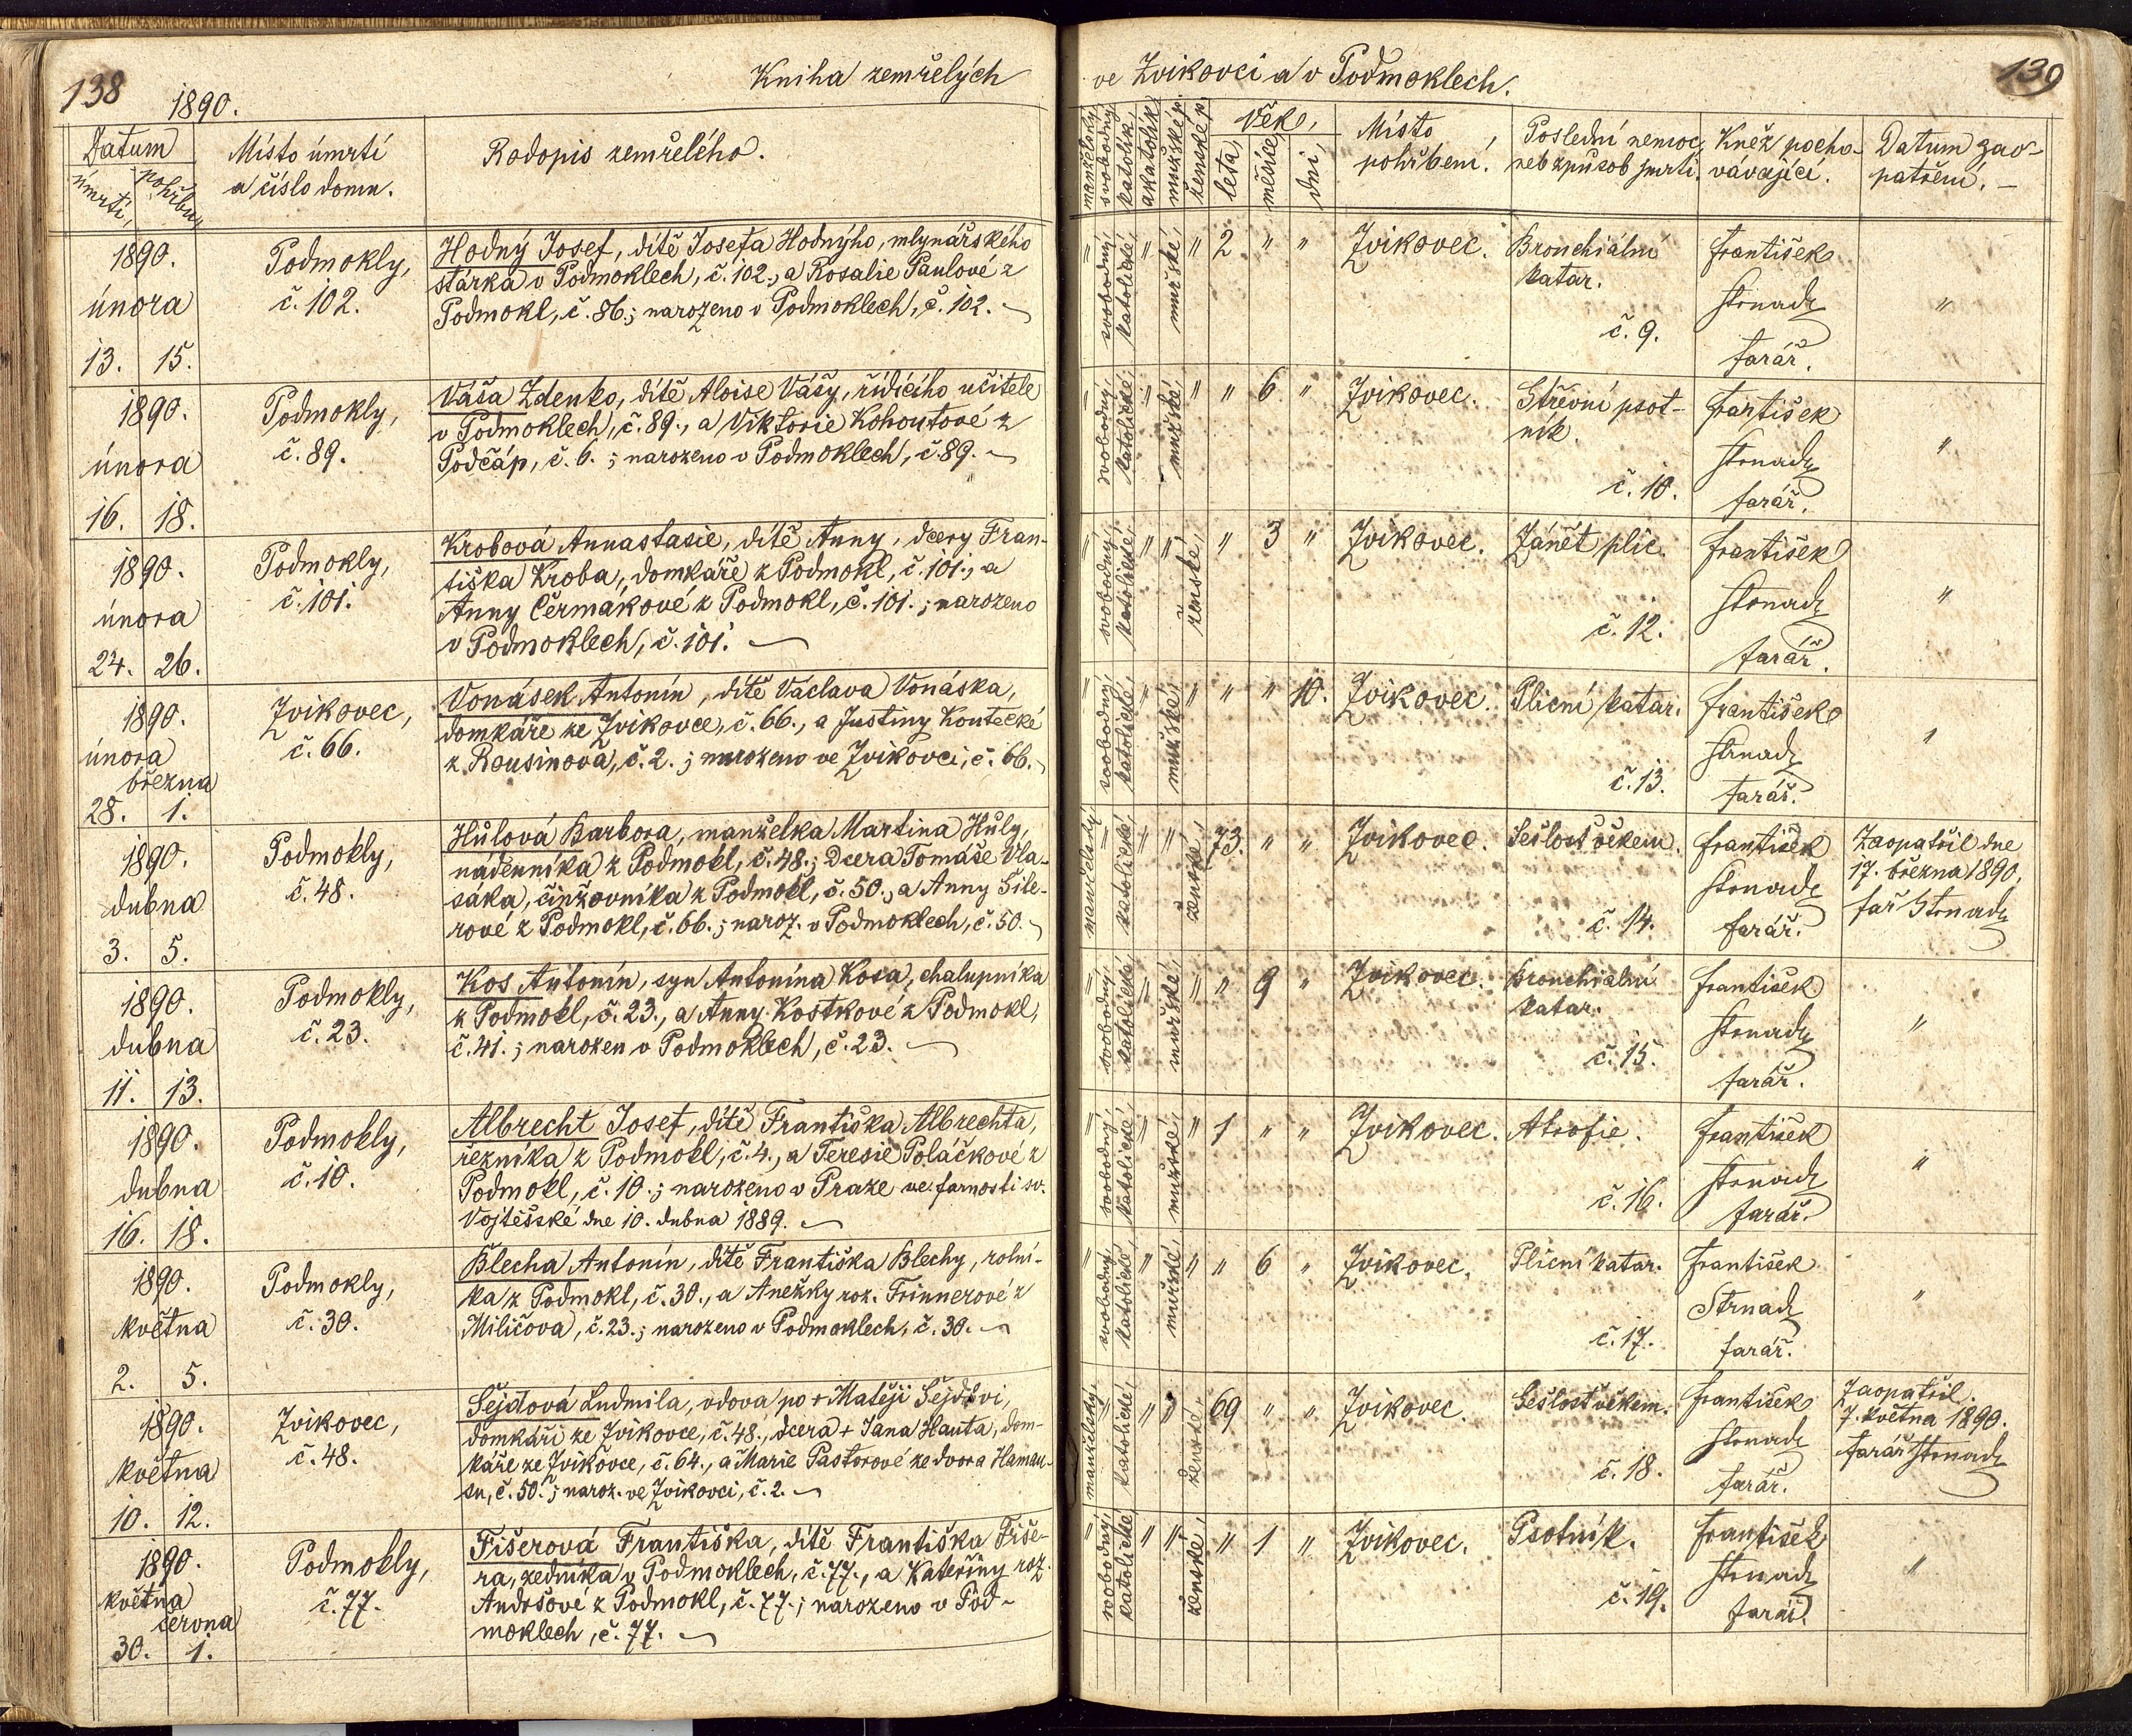 138
Kniha zemřelých
1890.
Datum
úmrtí,
pohřbu,
Místo úmrtí
a číslo domu.
Rodopis zemřelého.
1890.
února
13. 15.
Podmokly,
č. 102.
Hodný Josef, dítě Josefa Hodnýho, mlynářského
stárka v Podmoklech, č. 102., a Rosalie Paulové z
Podmokl, č. 86.; narozeno v Podmoklech, č. 102.
1890.
února
16. 18.
Podmokly,
č. 89.
Váša Zdenko, dítě Aloise Vášy, řídícího učitele
v Podmoklech, č. 89., a Viktorie Kohoutové z
Podčáp, č. 6.; narozeno v Podmoklech, č. 89.
1890.
února
24. 26.
Podmokly,
č. 101.
Krobová Annastasie, dítě Anny, dcery Fran-
tiška Kroba, domkáře z Podmokl, č. 101., a
Anny Čermákové z Podmokl, č. 101.; narozeno
v Podmoklech, č. 101.
1890.
února
března
28. 1.
Zvikovec,
č. 66.
Vonásek Antonín, dítě Václava Vonáska,
domkáře ze Zvikovce, č. 66., a Justiny Koutecké
z Rousinova, č. 2.; narozeno ve Zvikovci, č. 66.
1890.
dubna
3. 5.
Podmokly,
č. 48.
Hůlová Barbora, manželka Martina Hůly,
nádenníka z Podmokl, č. 48.; Dcera Tomáše Vla-
sáka, činžovníka z Podmokl, č. 50., a Anny Šile-
rové z Podmokl, č. 66.; naroz. v Podmoklech, č. 50.
1890.
dubna
11. 13.
Podmokly,
č. 23.
Kos Antonín, syn Antonína Kosa, chalupníka
z Podmokl, č. 23., a Anny Kostkové z Podmokl,
č. 41.; narozen v Podmoklech, č. 23.
1890.
dubna
16. 18.
Podmokly,
č. 10.
Albrecht Josef, dítě Františka Albrechta,
řezníka z Podmokl, č. 4., a Teresie Poláčkové z
Podmokl, č. 10.; narozeno v Praze ve farnosti sv.
Vojtěšské dne 10. dubna 1889.
1890.
května
2. 5.
Podmokly,
č. 30.
Blecha Antonín, dítě Františka Blechy, rolní-
ka z Podmokl, č. 30., a Anežky roz. Frinnerové z
Miličova, č. 23.; narozeno v Podmoklech, č. 30.
1890.
května
10. 12.
Zvikovec,
č. 48.
Šejdová Ludmila, vdova po + Matěji Šejdovi,
domkáři ze Zvikovce, č. 48., dcera + Jana Hauta, dom-
káře ze Zvikovce, č. 64., a Marie Pastorové ze dvora Hamau-
su, č. 50.; naroz. ve Zvikovci, č. 2.
1890.
května
června
30. 1.
Podmokly,
č. 77.
Fišerová Františka, dítě Františka Fiše-
ra, zedníka v Podmoklech, č. 77., a Kateřiny roz.
Andršové z Podmokl, č. 77.; narozeno v Pod-
moklech, č. 77.
ve Zvikovci a v Podmoklech.
139
manželský,
svobodný,
katolík,
akatolík,
mužské p.
ženské p.
Věk,
leta,
měsíce,
dni,
Místo
pohřbení.
Poslední nemoc,
neb způsob smrti.
Kněz pocho-
vávající.
Datum zao-
patření.
" svobodný, katolické, " mužské, " 2. " " Zvikovec. Bronchiální
katar.
č. 9.
František
Strnad
farář.
"
" svobodný, katolické, " mužské, " " 6. " Zvikovec. Střevní psot-
ník.
č. 10.
František
Strnad
farář.
"
" svobodný, katolické, " " ženské, " 3 " Zvikovec. Zánět plic.
č. 12.
František
Strnad
farář.
"
" svobodný, katolické, " mužské, " " " 10. Zvikovec. Plicní katar.
č. 13.
František
Strnad
farář.
"
manželský, " katolické, " " ženské, 73. " " Zvikovec. Sešlost věkem.
č. 14.
František
Strnad
farář.
Zaopatřil dne
17. března 1890.
far Strnad
" svobodný, katolické, " mužské, " " 9 " Zvikovec. Bronchiální
katar.
č. 15.
František
Strnad
farář.
"
" svobodný, katolické, " mužské, " 1 " " Zvikovec. Atrofie.
č. 16.
František
Strnad
farář.
"
" svobodný, katolické, " mužské, " " 6 " Zvikovec. Plicní katar.
č. 17.
František
Strnad
farář.
"
manželský, " katolické, " " ženské, 69 " " Zvikovec. Sešlost věkem.
č. 18.
František
Strnad
farář.
Zaopatřil
7. května 1890.
farář Strnad
" svobodný, katolické, " " ženské, " 1 " Zvikovec. Psotník.
č. 19.
František
Strnad
farář.
"